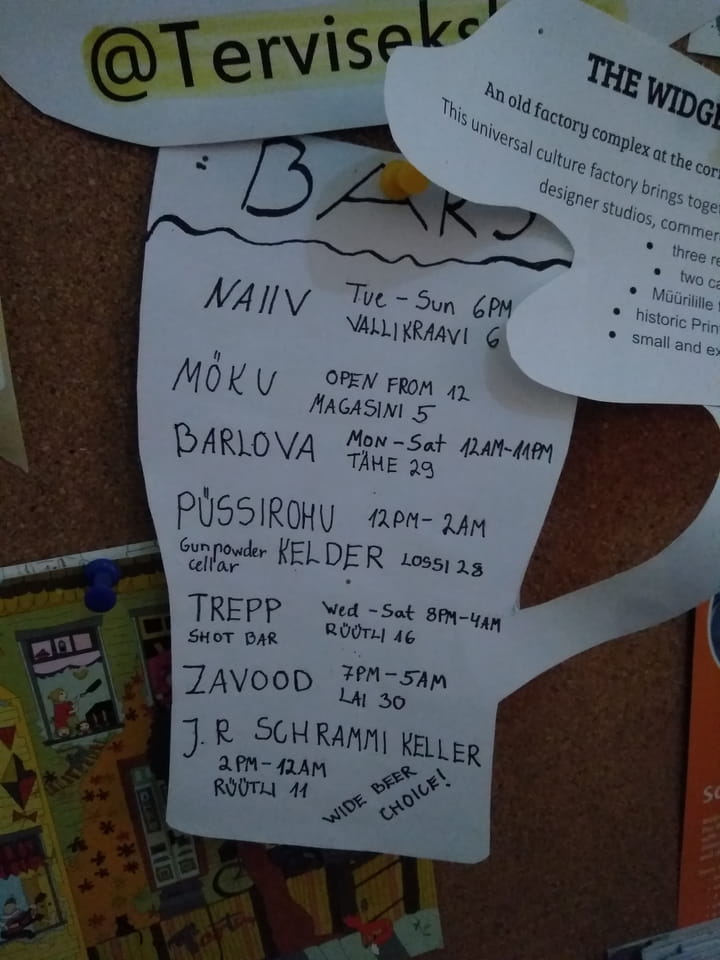 @Terviseks
THE WIDGE
An old factory complex at the cor
This universal culture factory brings toge
designer studios, commer
• three re
• two ca
• Müürilille
• historic Prin
• small and ex
BARS
NAIIV Tue - Sun 6PM
VALLIKRAAVI 6
MÖKU OPEN FROM 12
MAGASINI 5
BARLOVA Mon-Sat 12AM-11PM
TÄHE 29
PÜSSIROHU 12PM-2AM
Gunpowder KELDER LOSSI 28
cellar
TREPP Wed-Sat 8PM-4AM
SHOT BAR RÜÜTLI 16
ZAVOOD 7PM-5AM
LAI 30
J.R SCHRAMMI KELLER
2PM-12AM
RÜÜTLI 11
WIDE BEER
CHOICE!